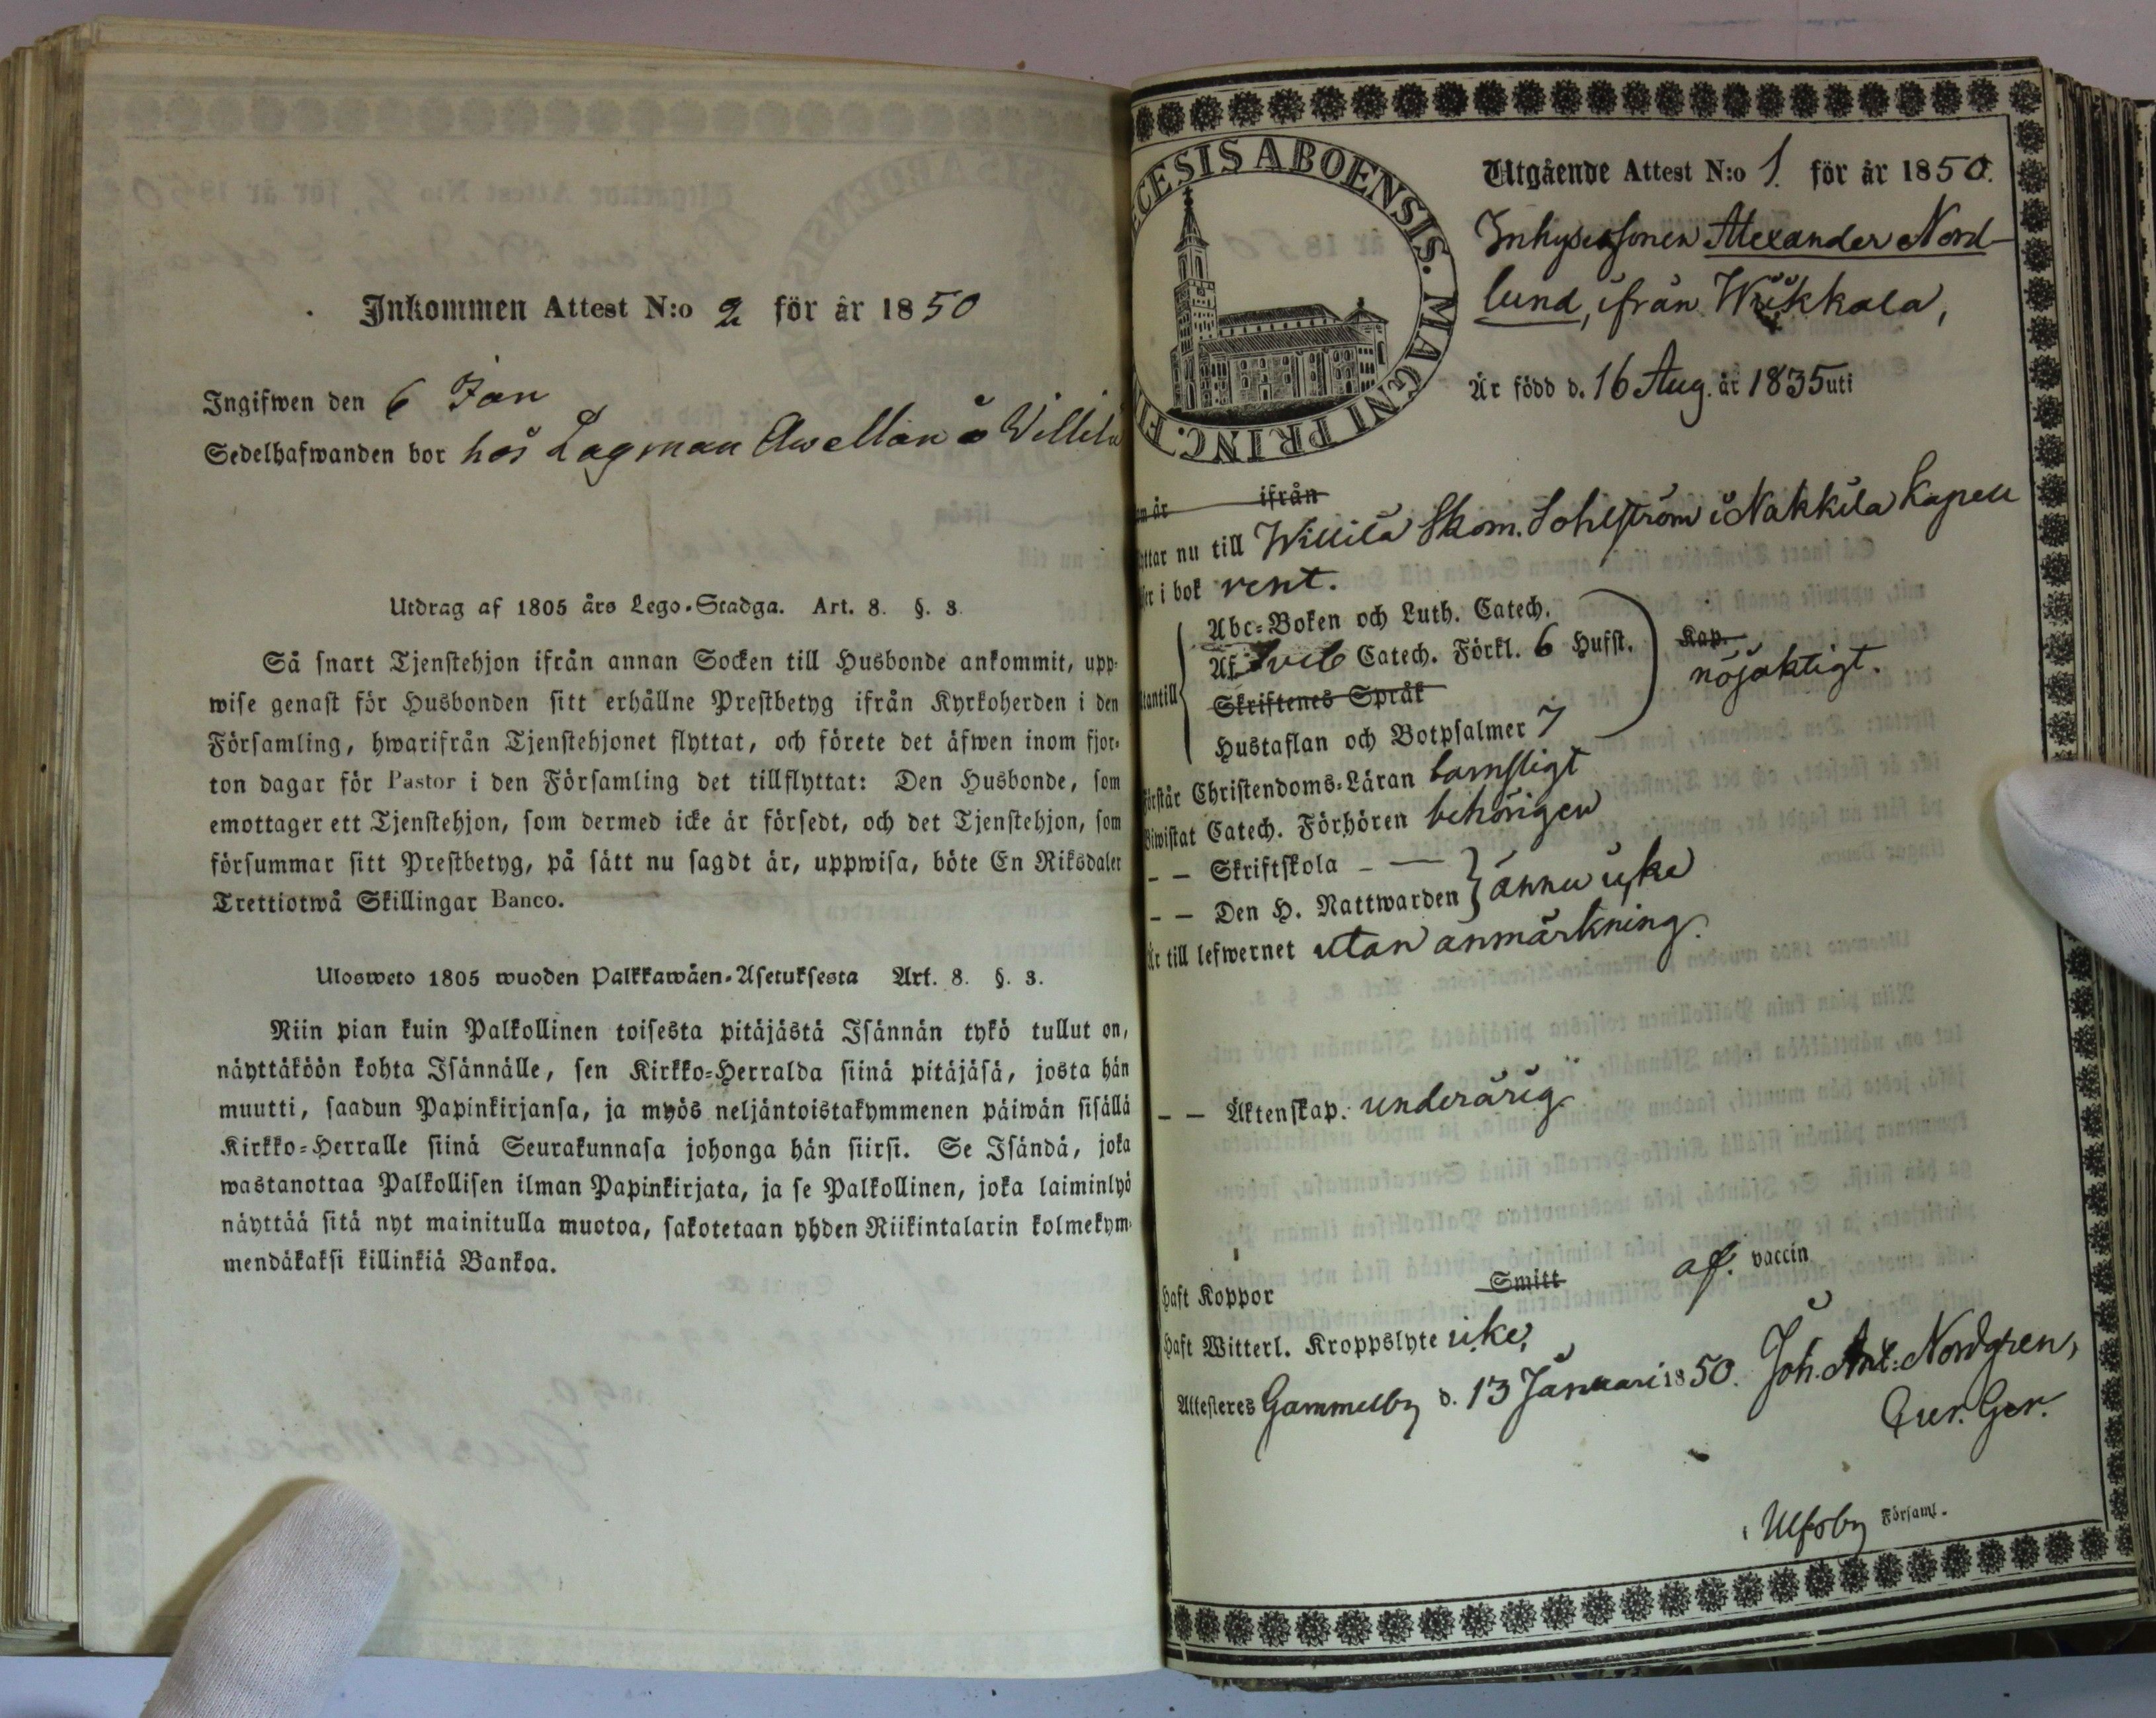 Inkommen Attest N:o 2 för år 1850
Ingifwen den 6 Jan
Sedelhafwanden bor hos Lagman Avellan å Villila
Utdrag af 1805 års Lego-Stadga. Art. 8. §. 3.
Så snart Tjenstehjon ifrån annan Socken till Husbonde ankommit, upp-
wise genast för Husbonden sitt erhållne Prestbetyg ifrån Kyrkoherden i den
Församling, hwarifrån Tjenstehjonet flyttat, och förete det äfwen inom fjor-
ton dagar för Pastor i den Församling det tillflyttat: Den Husbonde, som
emottager ett Tjenstehjon, som dermed icke är försedt, och det Tjenstehjon, som
försummar sitt Prestbetyg, på sätt nu sagdt är, uppwisa, böte En Riksdaler
Trettiotwå Skillingar Banco.
Ulosweto 1805 wuoden Palkkawäen-Asetuksesta Art. 8. §. 3.
Niin pian kuin Palkollinen toisesta pitäjästä Isännän tykö tullut on,
näyttäköön kohta Isännälle, sen Kirkko-Herralda siinä pitäjäsä, josta hän
muutti, saadun Papinkirjansa, ja myös neljäntoistakymmenen päiwän sisällä
Kirkko-Herralle siinä Seurakunnasa johonga hän siirsi. Se Isändä, joka
wastanottaa Palkollisen ilman Papinkirjata, ja se Palkollinen, joka laiminlyö
näyttää sitä nyt mainitulla muotoa, sakotetaan yhden Riikintalarin kolmekym-
mendäkaksi killinkiä Bankoa.
CESIS ABOENSIS. MAGNI PRINC. FI
Utgående Attest N:o 1. för år 1850.
Inhysessonen Alexander Nord-
lund, ifrån Wiikkala,
Är född d. 16 Aug. år 1835 uti
är ifrån
ttar nu till Willila Skom. Sohlström i Nakkila Kapell
i bok rent.
Abc-Boken och Luth. Catech.
Af Sveb Catech. Förkl. 6 Hufst.
Skriftenes Språk
Hustaflan och Botpsalmer 7
tantill
Kap.
nöjaktigt.
Förstår Christendoms-Läran barnsligt
Biwistat Catech. Förhören behörigen
– – Skriftskola – —
– – Den H. Nattwarden } ännu icke
Är till lefwernet utan anmärkning.
– – Äktenskap. underårig.
Haft Koppor Smitt af. vaccin
Haft Witterl. Kroppslyte icke,
Attesteras Gammelby d. 13 Januari 1850. Joh. Ant: Nordgren,
Cur. Ger.
i Ulfsby Församl.